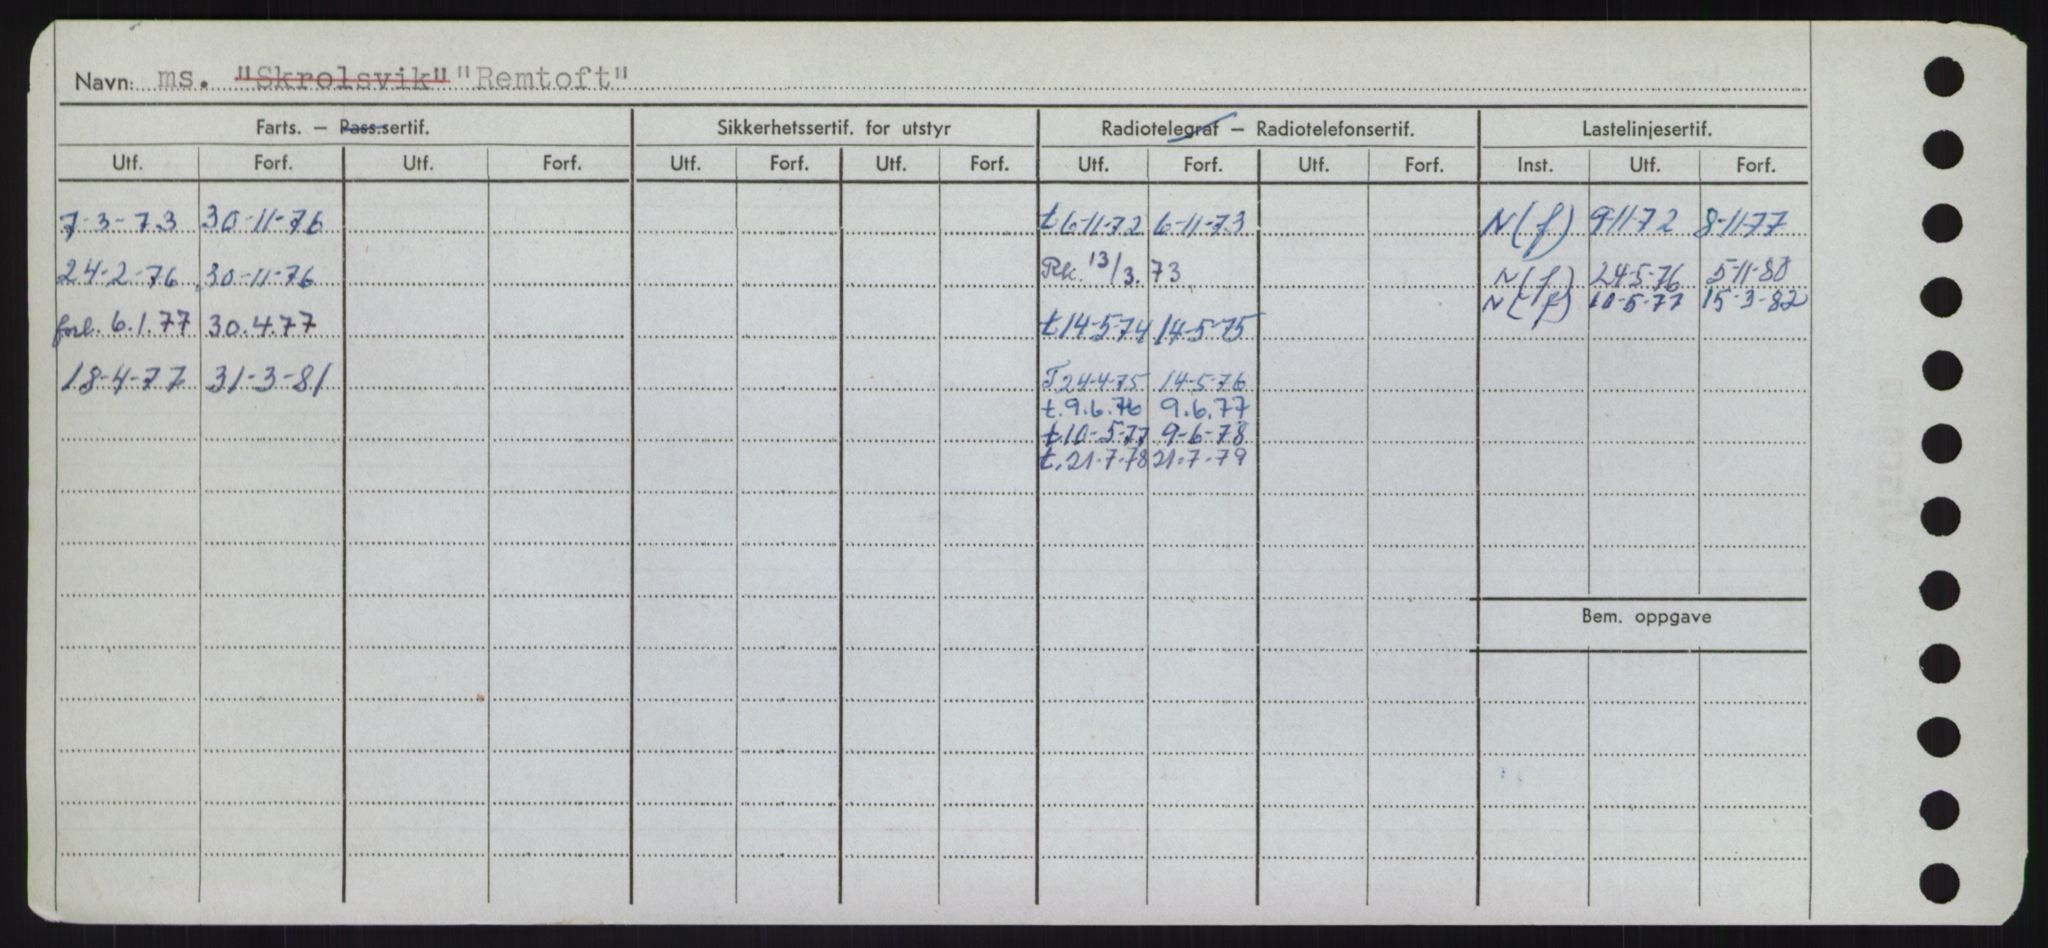 Navn: ms. "Skrolsvik" "Remtoft"
Farts. – Pass.sertif. Sikkerhetssertif. for utstyr Radiotelegraf – Radiotelefonsertif. Lastelinjesertif.
Utf. Forf. Utf. Forf. Utf. Forf. Utf. Forf. Utf. Forf. Utf. Forf. Inst. Utf. Forf.
7-3-73 30-11-76 t 6-11-72 6-11-73 N(f) 9-11-72 8-11-77
24-2-76 30-11-76 Rk. 13/3.73 N(f) 24-5-76 5-11-80
N(f) 10-5-77 15-3-82
forl. 6.1.77 30.4.77 t 14-5-74 14-5-75
18-4-77 31-3-81 T 24-4-75 14-5-76
t. 9.6.76 9.6.77
t.10-5-77 9-6-78
t. 21-7-78 21-7-79
Bem. oppgave